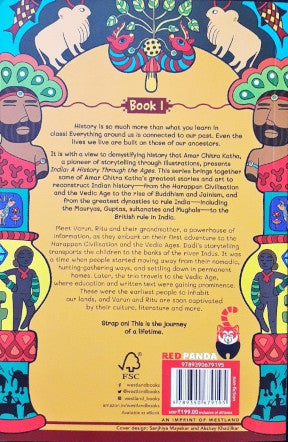 Book 1
History is so much more than what you learn in
class! Everything around us is connected to our past. Even the
lives we live are built on those of our ancestors.
It is with a view to demystifying history that Amar Chitra Katha,
a pioneer of storytelling through illustrations, presents
India: A History Through the Ages. This series brings together
some of Amar Chitra Katha's greatest stories and art to
reconstruct Indian history—from the Harappan Civilisation
and the Vedic Age to the rise of Buddhism and Jainism, and
from the greatest dynasties to rule India—including
the Mauryas, Guptas, sultanates and Mughals—to
the British rule in India.
Meet Varun, Ritu and their grandmother, a powerhouse of
information, as they embark on their first adventure to the
Harappan Civilisation and the Vedic Ages. Dadi's storytelling
transports the children to the banks of the river Indus. It was
a time when people started moving away from their nomadic,
hunting-gathering ways, and settling down in permanent
homes. Later, the trio travels to the Vedic Age,
where education and written text were gaining prominence.
These were the earliest people to inhabit
our lands, and Varun and Ritu are soon captivated
by their culture, literature and more.
Strap on! This is the journey
of a lifetime.
FSC
westlandbooks
westlandbooks
westlandbooks
amazon.in/westlandbooks
Available as eBook
RED PANDA
9789390679195
9 789390 679195
₹199.00
AN IMPRINT OF WESTLAND
Cover design: Sanjhiya Mayekar and Akshay Khadilkar